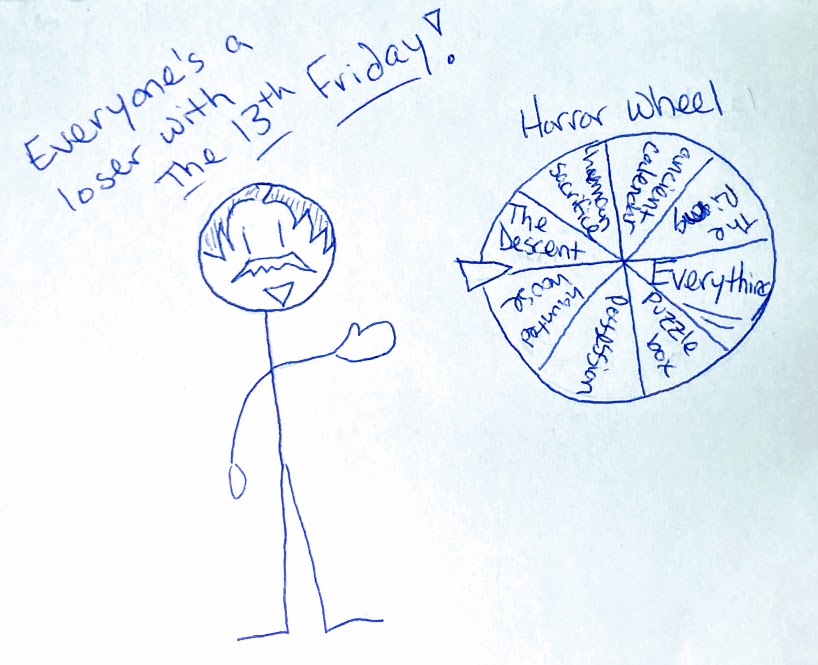 Everyone's a
loser with
The 13th Friday!
Horror Wheel
The
Descent
human
sacrifice
ancient
calender
The
Ring
Everything
puzzle
box
Possession
haunted
house